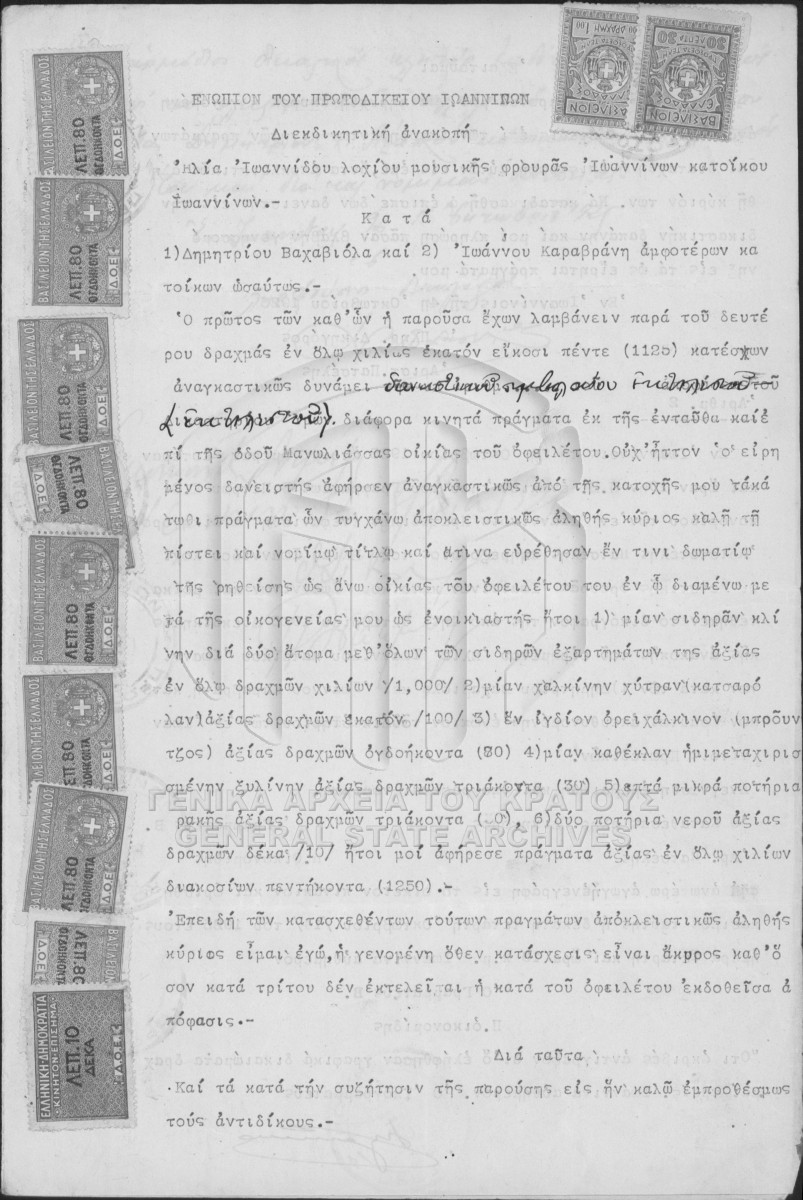 ΕΝΩΠΙΟΝ ΤΟΥ ΠΡΩΤΟΔΙΚΕΙΟΥ ΙΩΑΝΝΙΝΩΝ
Διεκδικητική ἀνακοπή
Ἠλία Ἰωαννίδου λοχίου μουσικῆς φρουρᾶς Ἰωαννίνων κατοίκου
Ἰωαννίνων.-
Κατά
1)Δημητρίου Βαχαβιόλα καί 2) Ἰωάννου Καραβράνη ἀμφοτέρων κα
τοίκων ὡσαύτως.-
Ὁ πρῶτος τῶν καθ'ὧν ἡ παροῦσα ἔχων λαμβάνειν παρά τοῦ δευτέ
ρου δραχμάς ἐν ὅλῳ χιλίας ἑκατόν εἴκοσι πέντε (1125) κατέσχων
ἀναγκαστικῶς δυνάμει
διάφορα κινητά πράγματα ἐκ τῆς ἐνταῦθα καί ἐ
πί τῆς ὁδοῦ Μανωλιάσσας οἰκίας τοῦ ὀφειλέτου.Οὐχ'ἧττον ὁ εἰρη
μένος δανειστής ἀφῆρσεν ἀναγκαστικῶς ἀπό τῆς κατοχῆς μου τἀκά
τωθι πράγματα ὧν τυγχάνω ἀποκλειστικῶς ἀληθής κύριος καλῇ τῇ
πίστει καί νομίμῳ τίτλῳ καί ἅτινα εὑρέθησαν ἔν τινι δωματίῳ
τῆς ρηθείσης ὡς ἄνω οἰκίας τοῦ ὀφειλέτου του ἐν ᾧ διαμένω με
τά τῆς οἰκογενείας μου ὡς ἐνοικιαστής ἤτοι 1) μίαν σιδηρᾶν κλί
νην διά δύο ἄτομα μεθ'ὅλων τῶν σιδηρῶν ἐξαρτημάτων της ἀξίας
ἐν ὅλῳ δραχμῶν χιλίων /1,000/ 2)μίαν χαλκίνην χύτραν(κατσαρό
λαν)ἀξίας δραχμῶν ἑκατόν /100/ 3) ἕν ἰγδίον ὀρειχάλκινον (μπροῦν
τζος) ἀξίας δραχμῶν ὀγδοήκοντα (80) 4)μίαν καθέκλαν ἡμιμεταχιρισ
σμένην ξυλίνην ἀξίας δραχμῶν τριάκοντα (30) 5)επτά μικρά ποτήρια
ρακῆς ἀξίας δραχμῶν τριάκοντα (30), 6)δύο ποτήρια νεροῦ ἀξίας
δραχμῶν δέκα /10/ ἤτοι μοί ἀφήρεσε πράγματα ἀξίας ἐν ὅλῳ χιλίων
διακοσίων πεντήκοντα (1250).-
Ἐπειδή τῶν κατασχεθέντων τούτων πραγμάτων ἀποκλειστικῶς ἀληθής
κύριος εἶμαι ἐγώ,ἡ γενομένη ὅθεν κατάσχεσις εἶναι ἄκυρος καθ'ὅ
σον κατά τρίτου δέν ἐκτελεῖται ἡ κατά τοῦ ὀφειλέτου ἐκδοθεῖσα ἀ
πόφασις.-
Διά ταῦτα
Καί τά κατά τήν συζήτησιν τῆς παρούσης εἰς ἥν καλῶ ἐμπροθέσμως
τούς ἀντιδίκους.-
ΓΕΝΙΚΑ ΑΡΧΕΙΑ ΤΟΥ ΚΡΑΤΟΥΣ
GENERAL STATE ARCHIVES
ΒΑΣΙΛΕΙΟΝ ΤΗΣ ΕΛΛΑΔΟΣ
ΛΕΠ. 80
ΟΓΔΟΗΚΟΝΤΑ
Δ.Ο.Ε.
ΒΑΣΙΛΕΙΟΝ ΤΗΣ ΕΛΛΑΔΟΣ
ΛΕΠ. 80
ΟΓΔΟΗΚΟΝΤΑ
Δ.Ο.Ε.
ΒΑΣΙΛΕΙΟΝ ΤΗΣ ΕΛΛΑΔΟΣ
ΛΕΠ. 80
ΟΓΔΟΗΚΟΝΤΑ
Δ.Ο.Ε.
ΛΕΠ. 80
ΟΓΔΟΗΚΟΝΤΑ
Δ.Ο.Ε.
ΒΑΣΙΛΕΙΟΝ ΤΗΣ ΕΛΛΑΔΟΣ
ΛΕΠ. 80
ΟΓΔΟΗΚΟΝΤΑ
Δ.Ο.Ε.
ΒΑΣΙΛΕΙΟΝ ΤΗΣ ΕΛΛΑΔΟΣ
Δ.Ο.Ε.
ΒΑΣΙΛΕΙΟΝ ΤΗΣ ΕΛΛΑΔΟΣ
ΛΕΠ. 80
ΟΓΔΟΗΚΟΝΤΑ
Δ.Ο.Ε.
ΛΕΠ. 80
ΟΓΔΟΗΚΟΝΤΑ
Δ.Ο.Ε.
ΕΛΛΗΝΙΚΗ ΔΗΜΟΚΡΑΤΙΑ
ΚΙΝΗΤΟΝ ΕΠΙΣΗΜΑ
ΛΕΠ. 10
ΔΕΚΑ
Δ.Ο.Ε.
ΒΑΣΙΛΕΙΟΝ
ΕΛΛΑΔΟΣ
ΔΡΑΧΜΗ 1.00
ΒΑΣΙΛΕΙΟΝ
ΕΛΛΑΔΟΣ
30 ΛΕΠΤΑ 30